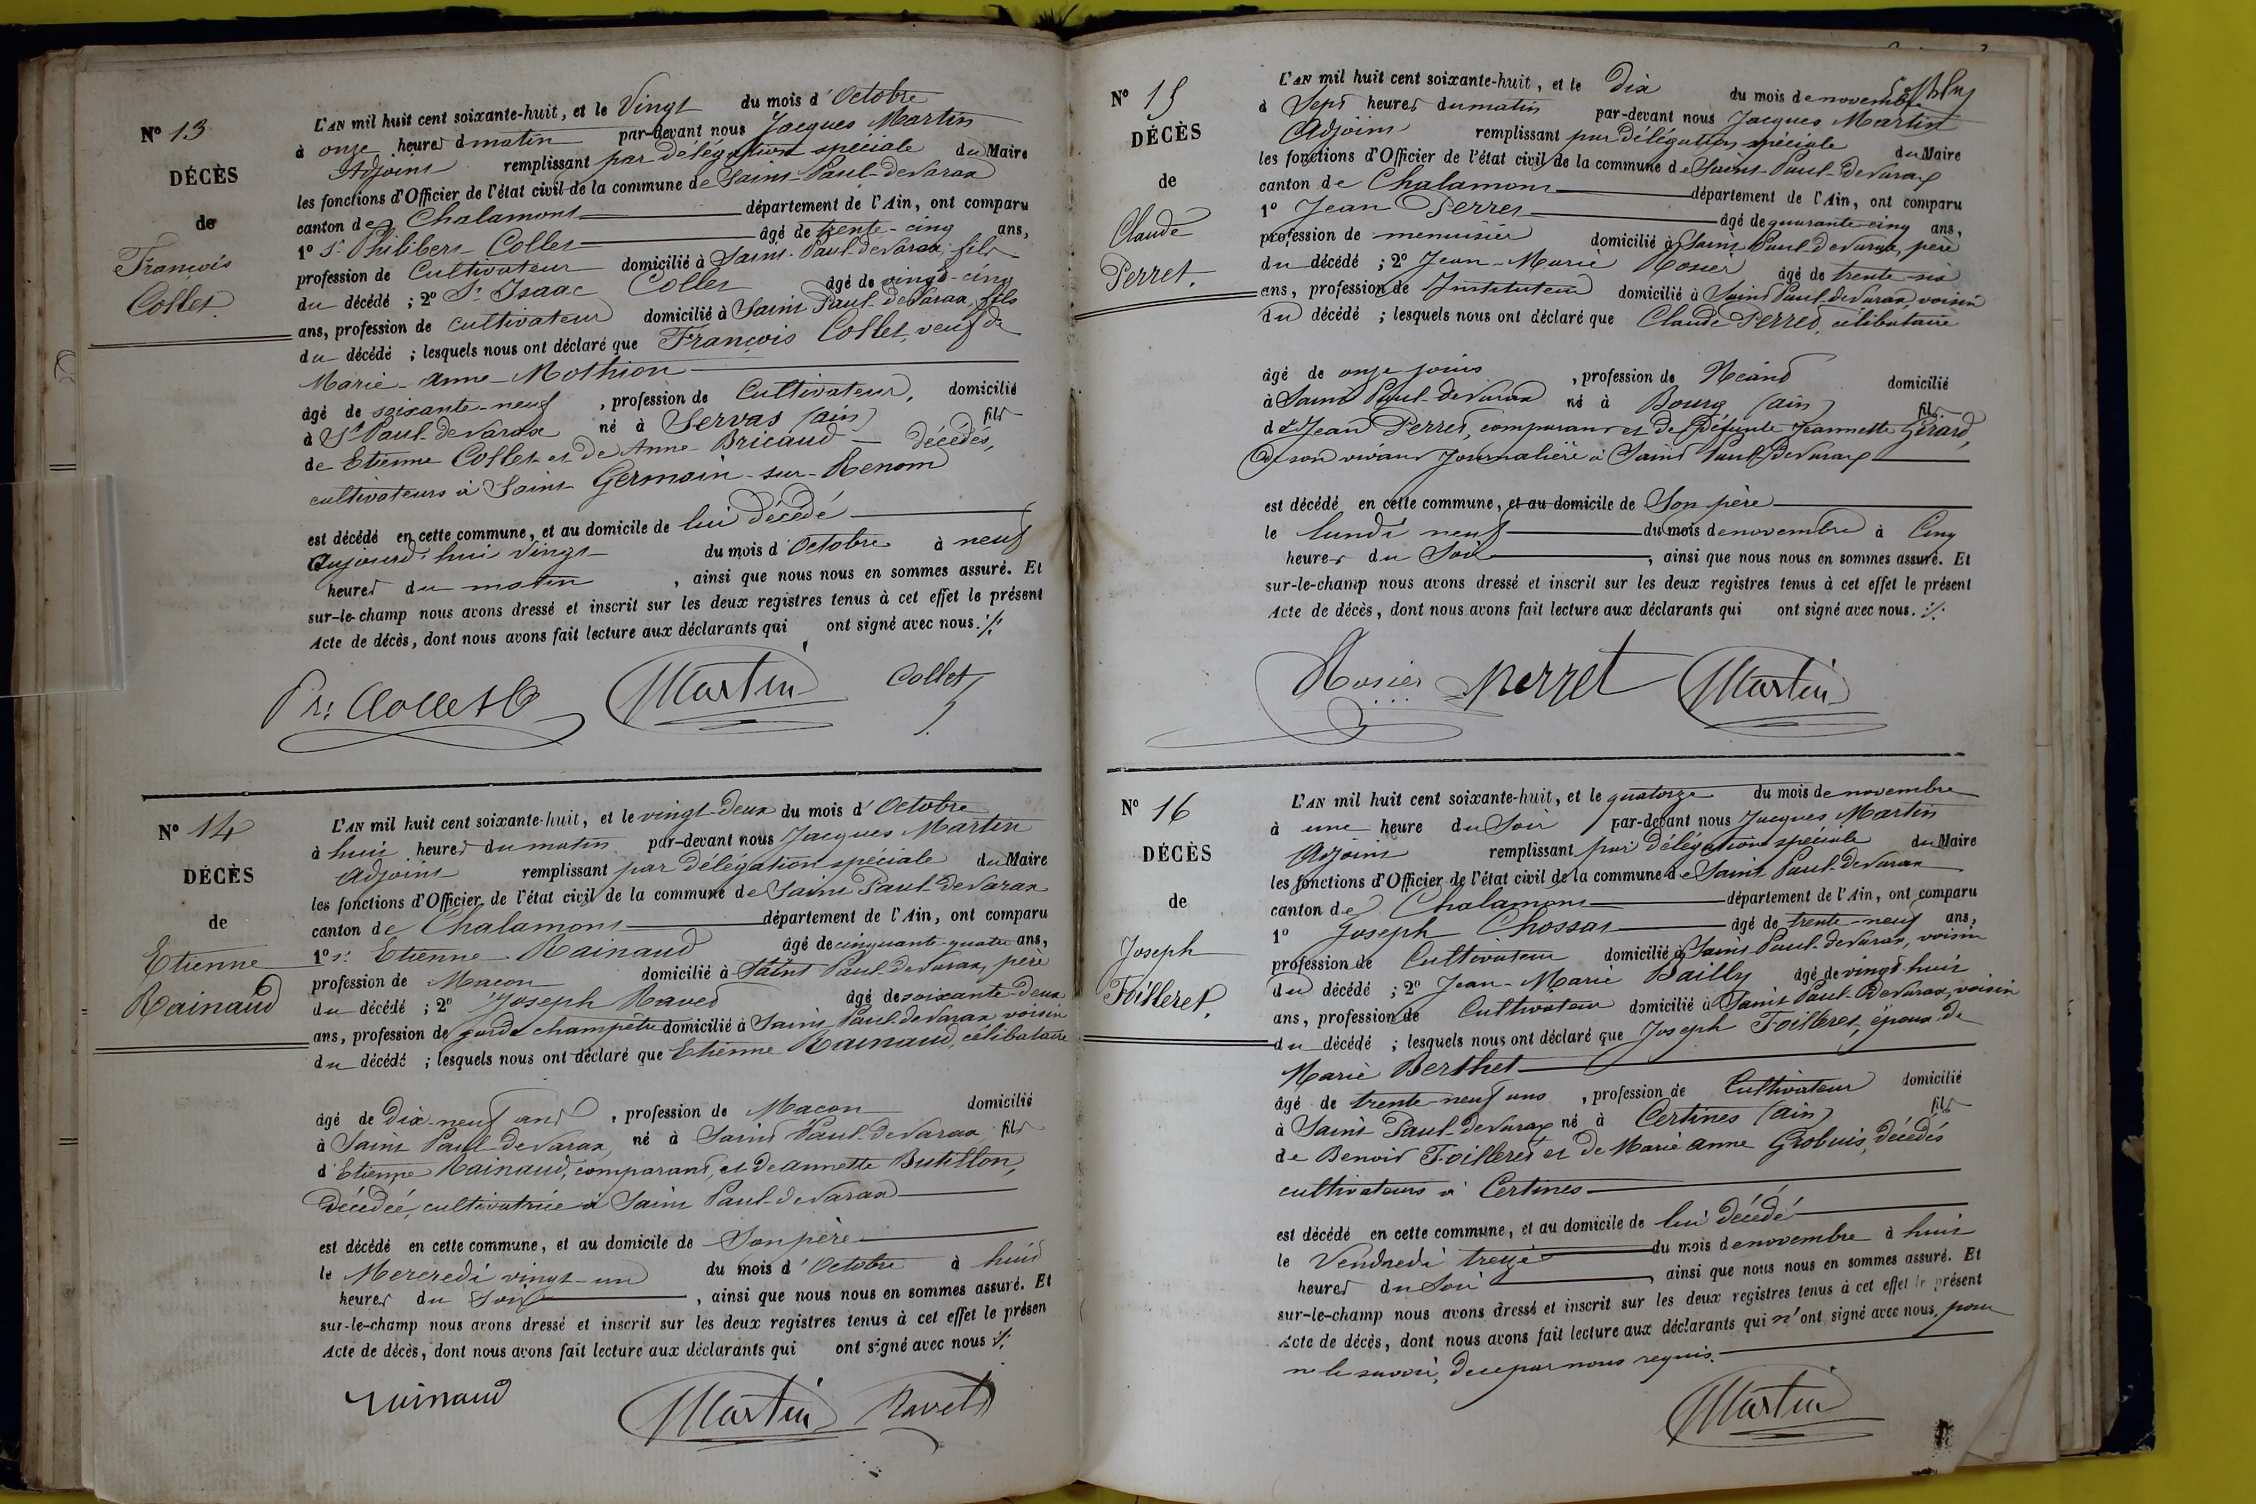 N° 13
DÉCÈS
de
François
Collet.
L'AN mil huit cent soixante-huit, et le Vingt du mois d'Octobre
à onze heures du matin par-devant nous Jacques Martin
Adjoint remplissant par délégation spéciale du Maire
les fonctions d'Officier de l'état civil de la commune de Saint-Paul-de Varax
canton de Chalamont département de l'Ain, ont comparu
1° Sr Philibert Collet âgé de trente-cinq ans,
profession de Cultivateur domicilié à Saint-Paul-de Varax, fils
du décédé ; 2° Sr Isaac Collet âgé de vingt-cinq
ans, profession de cultivateur domicilié à Saint Paul de Varax, fils
du décédé ; lesquels nous ont déclaré que François Collet, veuf de
Marie-Anne-Mothion
âgé de soixante-neuf , profession de Cultivateur, domicilié
à St Paul-de Varax né à Servas (ain) fils
de Etienne Collet et de Anne Bricaud décédés,
cultivateurs à Saint Germain-sur-Renom
est décédé en cette commune, et au domicile de lui décédé
Aujourd'hui vingt du mois d'Octobre à neuf
heures du matin , ainsi que nous nous en sommes assuré. Et
sur-le-champ nous avons dressé et inscrit sur les deux registres tenus à cet effet le présent
Acte de décès, dont nous avons fait lecture aux déclarants qui ont signé avec nous ./.
Martin Collet
N° 14
DÉCÈS
de
Etienne
Rainaud
L'AN mil huit cent soixante-huit, et le vingt-deux du mois d'Octobre
à huit heures du matin par-devant nous Jacques Martin
Adjoint remplissant par délégation spéciale du Maire
les fonctions d'Officier de l'état civil de la commune de Saint Paul-de Varax
canton de Chalamont département de l'Ain, ont comparu
1° Sr Etienne Rainaud âgé de cinquante-quatre ans,
profession de Macon domicilié à Saint Paul-de Varax, père
du décédé ; 2° Joseph Ravet âgé de soixante-deux
ans, profession de garde champêtre domicilié à Saint Paul-de Varax voisin
du décédé ; lesquels nous ont déclaré que Etienne Rainaud, célibataire
âgé de Dix-neuf ans , profession de Macon domicilié
à Saint Paul de Varax, né à Saint Paul-de Varax fils
d'Etienne Rainaud, comparant, et de annette Butillon,
Décédée, cultivatrice à Saint Paul-de Varax
est décédé en cette commune, et au domicile de Son père
le Mercredi vingt-un du mois d'Octobre à huit
heures du Soir , ainsi que nous nous en sommes assuré. Et
sur-le-champ nous avons dressé et inscrit sur les deux registres tenus à cet effet le présen
Acte de décès, dont nous avons fait lecture aux déclarants qui ont signé avec nous ./.
rainaud Martin Ravet
N° 15
DÉCÈS
de
Claude
Perret.
L'AN mil huit cent soixante-huit, et le Dix du mois de novembre
à Sept heures du matin par-devant nous Jacques Martin
Adjoint remplissant par délégation spéciale du Maire
les fonctions d'Officier de l'état civil de la commune de Saint-Paul-de Varax
canton de Chalamont département de l'Ain, ont comparu
1° Jean Perret âgé de quarante-cinq ans,
profession de menuisier domicilié à Saint Paul de Varax, père
du décédé ; 2° Jean-Marie Rosier âgé de trente-six
ans, profession de Instituteur domicilié à Saint Paul-de Varax, voisin
du décédé ; lesquels nous ont déclaré que Claude Perret, célibataire
âgé de onze jours , profession de Néant domicilié
à Saint Paul-de Varax né à Bourg (ain) fils
de Jean Perret, comparant et de Défunte Jeannette Girard,
De son vivant Journalière à Saint Paul-de Varax
est décédé en cette commune, et au domicile de Son père
le lundi neuf du mois de novembre à Cinq
heures du Soir , ainsi que nous nous en sommes assuré. Et
sur-le-champ nous avons dressé et inscrit sur les deux registres tenus à cet effet le présent
Acte de décès, dont nous avons fait lecture aux déclarants qui ont signé avec nous ./.
Rosier perret Martin
N° 16
DÉCÈS
de
Joseph
Foilleret.
L'AN mil huit cent soixante-huit, et le quatorze du mois de novembre
à une heure du Soir par-devant nous Jacques Martin
Adjoint remplissant par délégation spéciale du Maire
les fonctions d'Officier de l'état civil de la commune de Saint Paul-de Varax
canton de Chalamont département de l'Ain, ont comparu
1° Joseph Chossat âgé de trente-neuf ans,
profession de Cultivateur domicilié à Saint Paul-de Varax, voisin
du décédé ; 2° Jean-Marie Bailly âgé de vingt huit
ans, profession de Cultivateur domicilié à Saint Paul-De Varax, voisin
du décédé ; lesquels nous ont déclaré que Joseph Foilleret, époux de
Marie Berthet
âgé de trente-neuf ans , profession de Cultivateur domicilié
à Saint Paul-de Varax né à Certines (ain) fils
de Benoit Foilleret et de Marie anne Grobuis, décédés
cultivateurs à Certines
est décédé en cette commune, et au domicile de lui décédé
le Vendredi treize du mois de novembre à huit
heures du Soir , ainsi que nous nous en sommes assuré. Et
sur-le-champ nous avons dressé et inscrit sur les deux registres tenus à cet effet le présent
Acte de décès, dont nous avons fait lecture aux déclarants qui n'ont signé avec nous, pour
ne le savoir, de ce par nous requis.
Martin